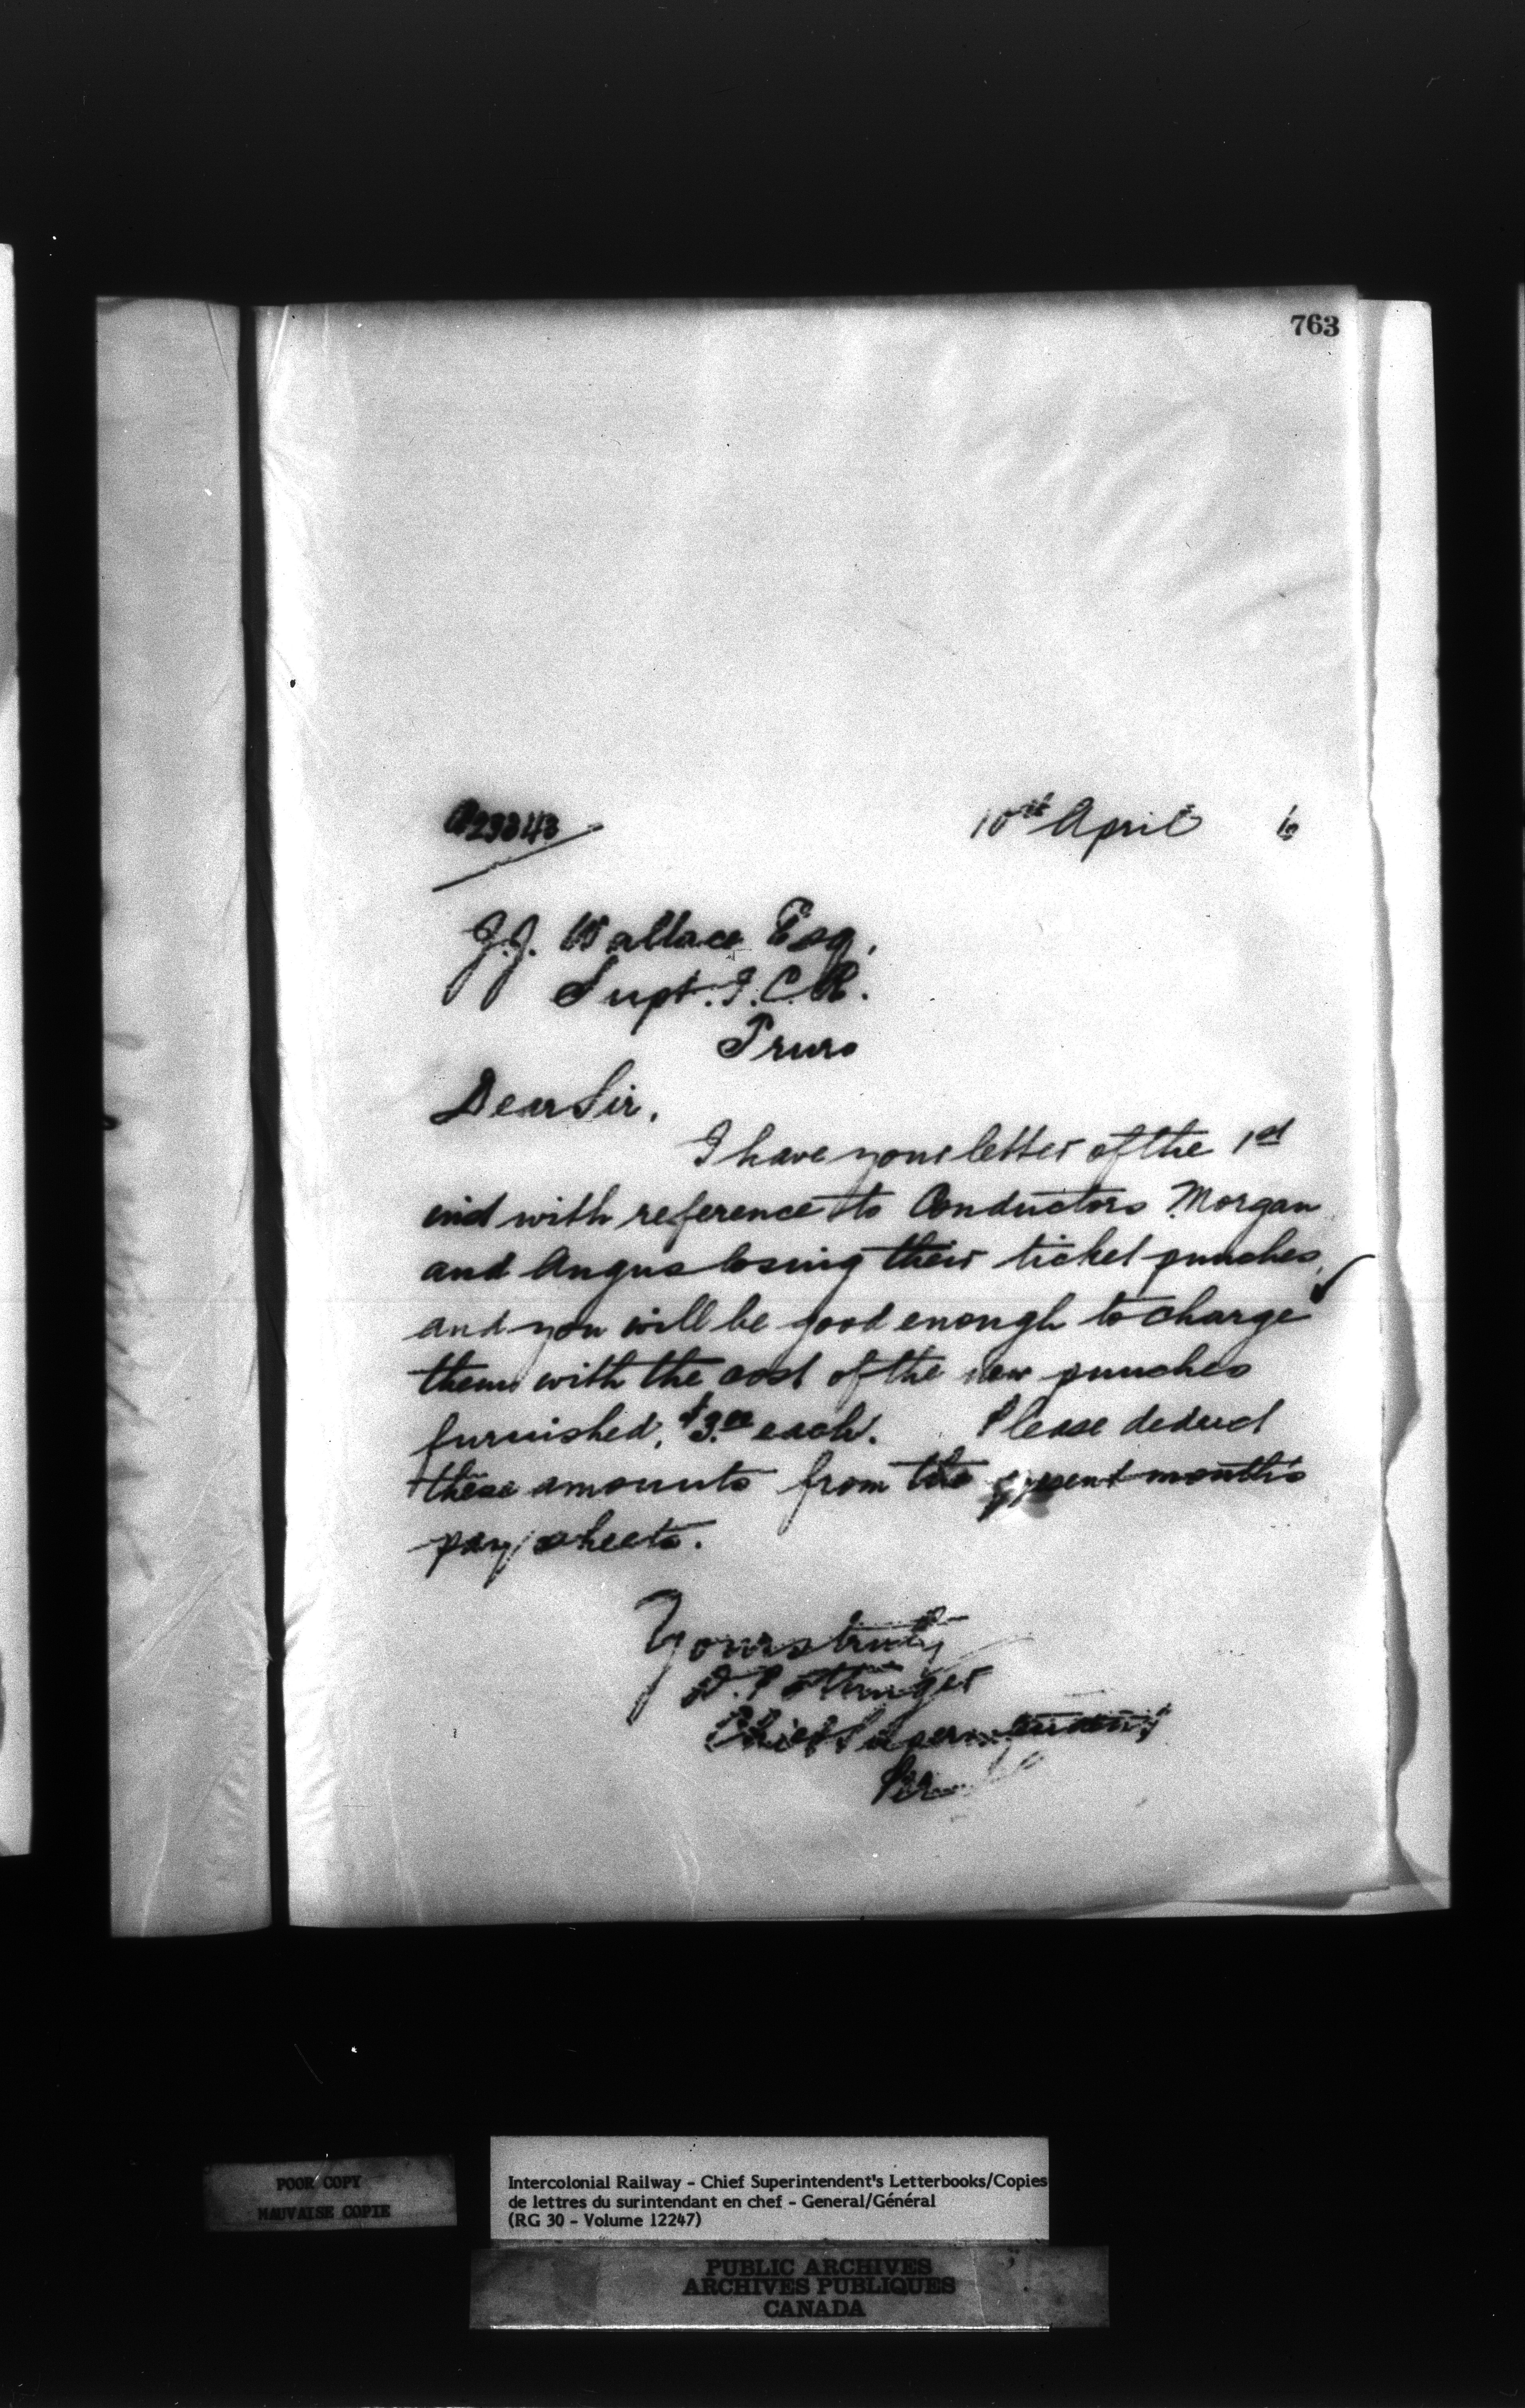 763
23343
10th April 6
J.J. Wallace Esq,
Supt. I.C.R.
Truro
Dear Sir,
I have your letter of the 1st
inst with reference to Conductors Morgan
and Angus losing their ticket punches,
and you will be good enough to charge
them with the cost of the new punches
furnished, $3.00 each. Please deduct
these amounts from the present month's
pay sheets.
Yours truly
D. Pottinger
Chief Superintendent
Per
POOR COPY
MAUVAISE COPIE
Intercolonial Railway - Chief Superintendent's Letterbooks/Copies
de lettres du surintendant en chef - General/Général
(RG 30 - Volume 12247)
PUBLIC ARCHIVES
ARCHIVES PUBLIQUES
CANADA